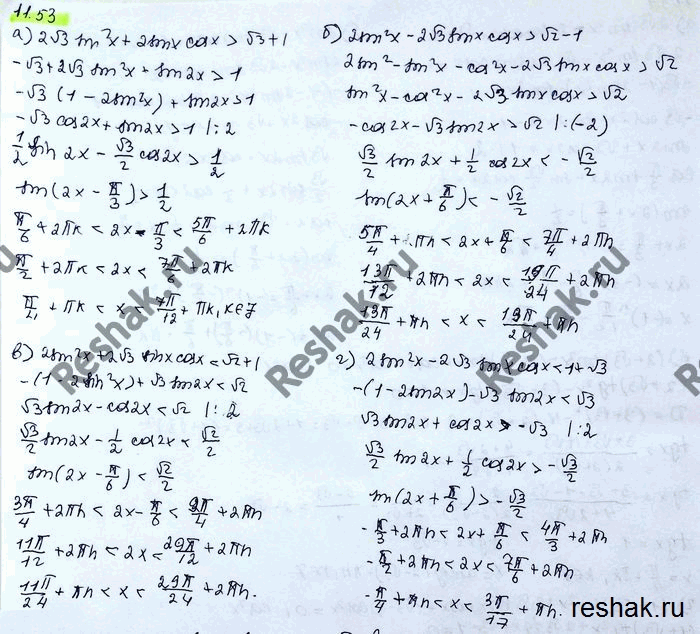 11.53
а) 2√3 sin²x + 2sinx cosx > √3+1
-√3+2√3 sin²x + sin2x > 1
-√3 (1 - 2sin²x) + sin2x > 1
-√3 cos2x + sin2x > 1 |:2
1/2 sin 2x - √3/2 cos2x > 1/2
sin(2x - π/3) > 1/2
π/6 + 2πk < 2x - π/3 < 5π/6 + 2πk
π/2 + 2πk < 2x < 7π/6 + 2πk
π/4 + πk < x < 7π/12 + πk, k∈Z
б) 2sin²x - 2√3 sinx cosx > √2 - 1
2sin² - sin²x - cos²x - 2√3 sinx cosx > √2
sin²x - cos²x - 2√3 sinx cosx > √2
-cos2x - √3 sin2x > √2 |:(-2)
√3/2 sin2x + 1/2 cos2x < -√2/2
sin(2x + π/6) < -√2/2
5π/4 + 2πn < 2x + π/6 < 7π/4 + 2πn
13π/12 + 2πn < 2x < 19π/24 + 2πn
13π/24 + πn < x < 19π/24 + πn
в) 2sin²x + 2√3 sinx cosx < √2 + 1
-(1 - 2sin²x) + √3 sin2x < √2
√3 sin2x - cos2x < √2 |:2
√3/2 sin2x - 1/2 cos2x < √2/2
sin(2x - π/6) < √2/2
3π/4 + 2πn < 2x - π/6 < 9π/4 + 2πn
11π/12 + 2πn < 2x < 29π/12 + 2πn
11π/24 + πn < x < 29π/24 + 2πn.
г) 2sin²x - 2√3 sinx cosx < 1 + √3
-(1 - 2sin2x) - √3 sin2x < √3
√3 sin2x + cos2x > -√3 |:2
√3/2 sin2x + 1/2 cos2x > -√3/2
sin(2x + π/6) > -√3/2
-π/3 + 2πn < 2x + π/6 < 4π/3 + 2πn
-π/2 + 2πn < 2x < 7π/6 + 2πn
-π/4 + πn < x < 3π/17 + πn.
Reshak.ru
Reshak.ru
reshak.ru